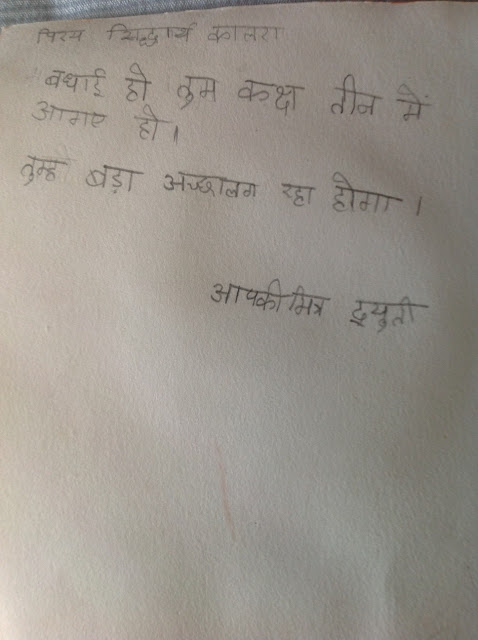 पिरय सिद्धार्थ कालरा
बधाई हो तुम कक्ष तीन में
आगए हो।
तुम्ह बड़ा अच्छालग रहा होगा।
आपकी मित्र द्युती